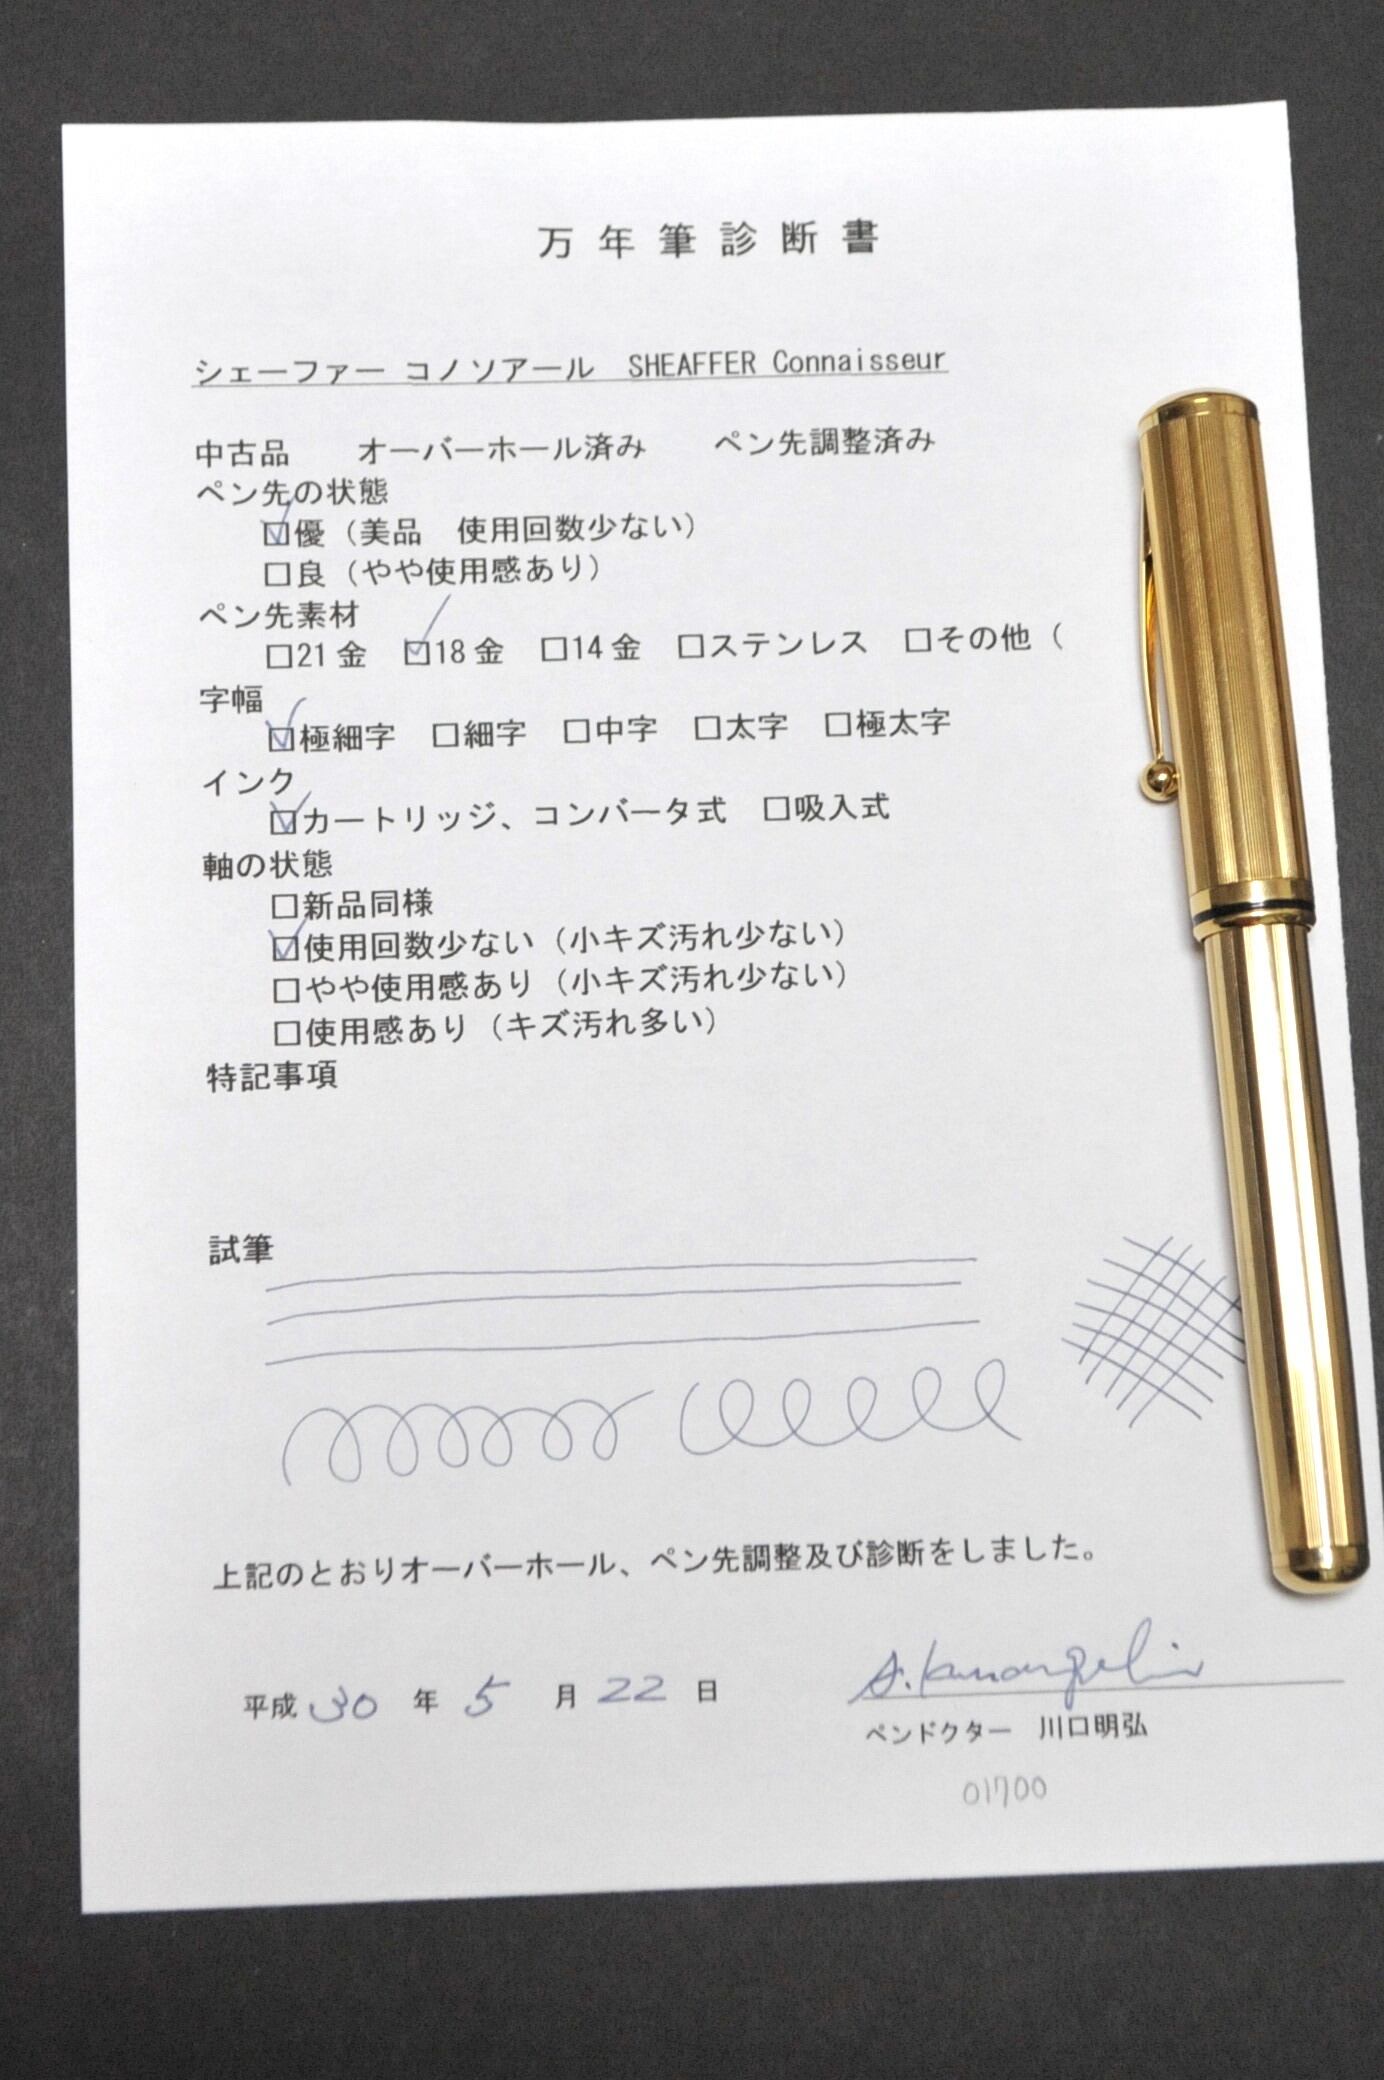 万年筆診断書
シェーファー コノソアール SHEAFFER Connaisseur
中古品 オーバーホール済み ペン先調整済み
ペン先の状態
☑優（美品 使用回数少ない）
□良（やや使用感あり）
ペン先素材
□21金 ☑18金 □14金 □ステンレス □その他（
字幅
☑極細字 □細字 □中字 □太字 □極太字
インク
☑カートリッジ、コンバータ式 □吸入式
軸の状態
□新品同様
☑使用回数少ない（小キズ汚れ少ない）
□やや使用感あり（小キズ汚れ少ない）
□使用感あり（キズ汚れ多い）
特記事項
試筆
上記のとおりオーバーホール、ペン先調整及び診断をしました。
平成30年5月22日
ペンドクター 川口明弘
01700